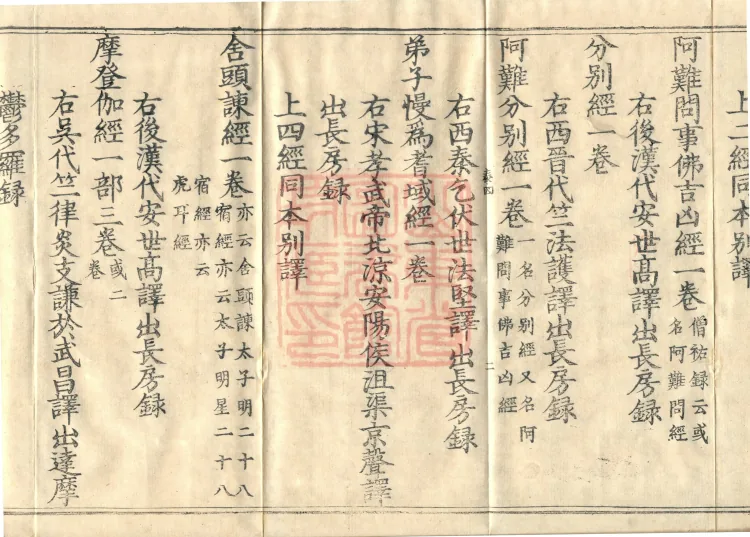 上二經同本別譯
阿難問事佛吉凶經一卷 僧祐録云或名阿難問經
右後漢代安世髙譯出長房録
分別經一卷
右西晉代竺法護譯出長房録
阿難分別經一卷 一名分別經又名阿難問事佛吉凶經
右西秦乞伏世法堅譯出長房録
弟子慢為耆域經一卷
右宋孝武帝北涼安陽侯沮渠京聲譯
出長房録
上四經同本別譯
舍頭諫經一卷 亦云舍頭諫太子明二十八宿經亦云太子明星二十八宿經亦云虎耳經
右後漢代安世髙譯出長房録
摩登伽經一部三卷 或二卷
右吳代竺律炎支謙於武昌譯出達摩
鬱多羅録